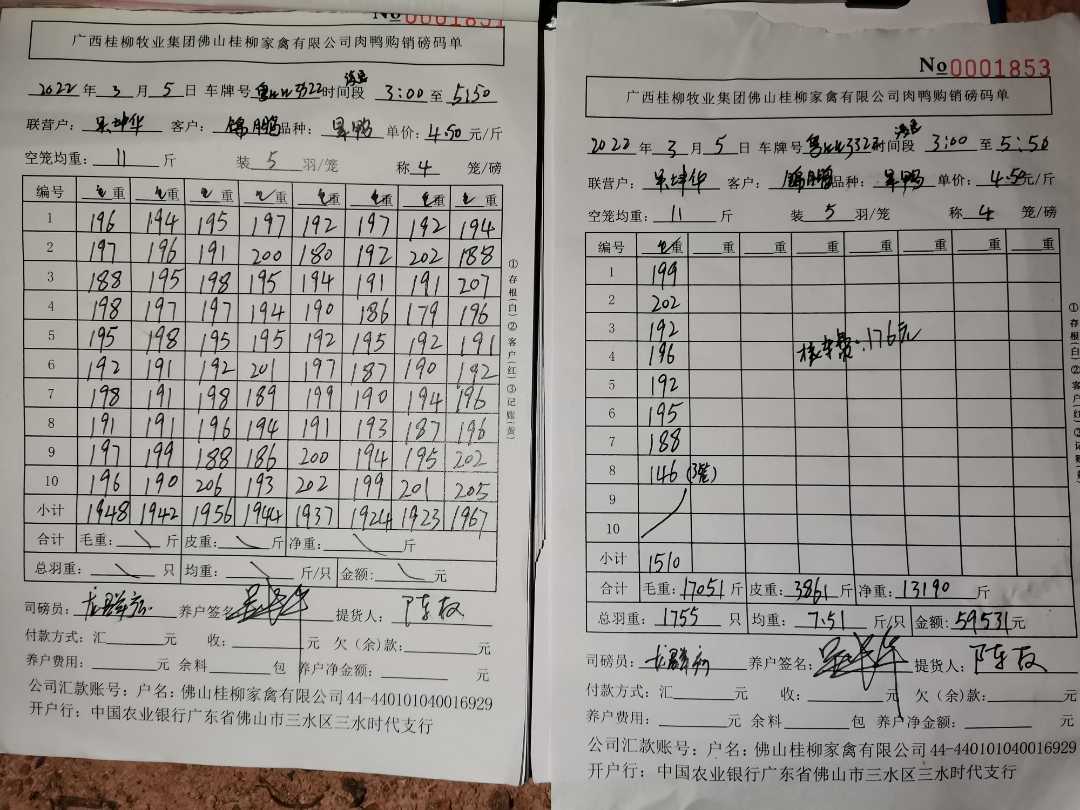 No 0001851
广西桂柳牧业集团佛山桂柳家禽有限公司肉鸭购销磅码单
2022 年 3 月 5 日 车牌号 3322 时间段 3:00 至 5:50
联营户: 客户: 锦鹏 品种: 单价: 4.50 元/斤
空笼均重: 11 斤 装 5 羽/笼 称 4 笼/磅
编号 毛重 毛重 毛重 毛重 毛重 毛重 毛重 毛重
1 196 194 195 197 192 197 192 194
2 197 196 191 200 180 192 202 188
3 188 195 198 195 194 191 191 207
4 198 197 197 194 190 186 179 196
5 195 198 195 195 192 195 192 191
6 192 191 192 201 197 187 190 192
7 198 191 198 189 199 190 194 196
8 191 191 196 194 191 193 187 196
9 197 199 188 186 200 194 195 202
10 196 190 206 193 202 199 201 205
小计 1948 1942 1956 1944 1937 1924 1923 1967
合计 毛重: 斤 皮重: 斤 净重: 斤
总羽重: 只 均重: 斤/只 金额: 元
司磅员: 养户签名: 提货人: 陈权
付款方式:汇 元 收: 元 欠(余)款:
养户费用: 元 余料 包 养户净金额: 元
公司汇款账号:户名:佛山桂柳家禽有限公司44-440101040016929
开户行:中国农业银行广东省佛山市三水区三水时代支行
①存根(白)②客户(红)③记账(黄)
No 0001853
广西桂柳牧业集团佛山桂柳家禽有限公司肉鸭购销磅码单
2022 年 3 月 5 日 车牌号 3322 时间段 3:00 至 5:50
联营户: 客户: 锦鹏 品种: 单价: 4.50 元/斤
空笼均重: 11 斤 装 5 羽/笼 称 4 笼/磅
编号 毛重 重 重 重 重 重 重 重
1 199
2 202
3 192
4 196 费:176元
5 192
6 195
7 188
8 146 (3笼)
9
10
小计 1510
合计 毛重: 17051 斤 皮重: 3861 斤 净重: 13190 斤
总羽重: 1755 只 均重: 7.51 斤/只 金额: 59531 元
司磅员: 养户签名: 提货人: 陈权
付款方式:汇 元 收: 元 欠(余)款:
养户费用: 元 余料 包 养户净金额: 元
公司汇款账号:户名:佛山桂柳家禽有限公司44-440101040016929
开户行:中国农业银行广东省佛山市三水区三水时代支行
①存根(白)②客户(红)③记账